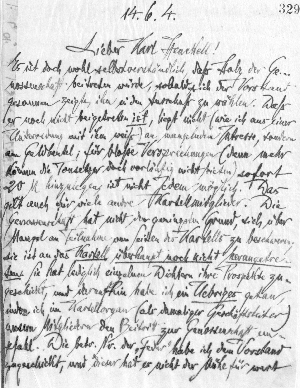 329
14.6.4.
Lieber Karl Henckell!
Es ist doch wohl selbstverständlich, daß Holz der Ge-
nossenschaft beitreten würde, sobald sich der Vorstand
gezwungen zeigte, ihn in den Ausschuß zu wählen. Daß
er noch nicht beigetreten ist, liegt nicht (wie ich aus einer
mit ihm weiß) an mangelndem Interesse, sondern
am Geldbeutel; für bloße Versprechungen (denn mehr
können die Tonsetzer doch vorläufig nicht bieten) sofort
20 M hinzulegen ist nicht jedem möglich. Das
gilt auch für viele andre Kartellmitglieder. Die
Genossenschaft hat nicht den geringsten Grund, sich über
Mangel an Teilnahme von seiten des Kartells zu beschweren.
sie ist an das Kartell überhaupt noch nicht herangetre-
ten; sie hat lediglich einzelnen Dichtern ihre Prospekte zu-
geschickt, und daraufhin habe ich ein Uebriges getan,
indem ich im Kartellorgan (als damaliger Geschäftsleiter)
unsern Mitgliedern den Beitritt zur Genossenschaft em-
pfahl. Die betr. No. der "Feder" habe ich dem Vorstand
zugeschickt, und dieser hat es nicht der Mühe für wert